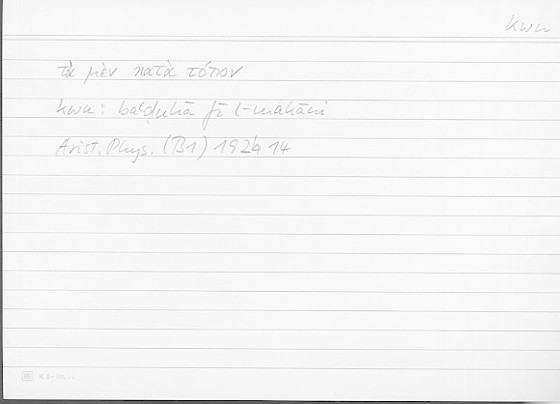 kwn
τὰ μὲν κατὰ τόπον
kwn: baʿḍuhā fī l-makāni
Arist. Phys. (B1) 192b14